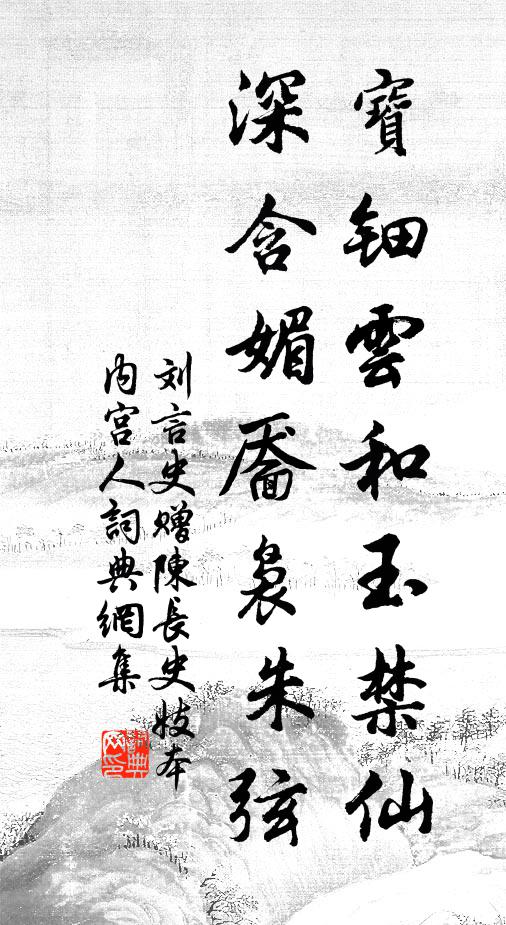 寶鈿雲和玉禁仙
深含媚靨裊朱弦
刘言史贈陳長史妓本
内宫人詞典網集